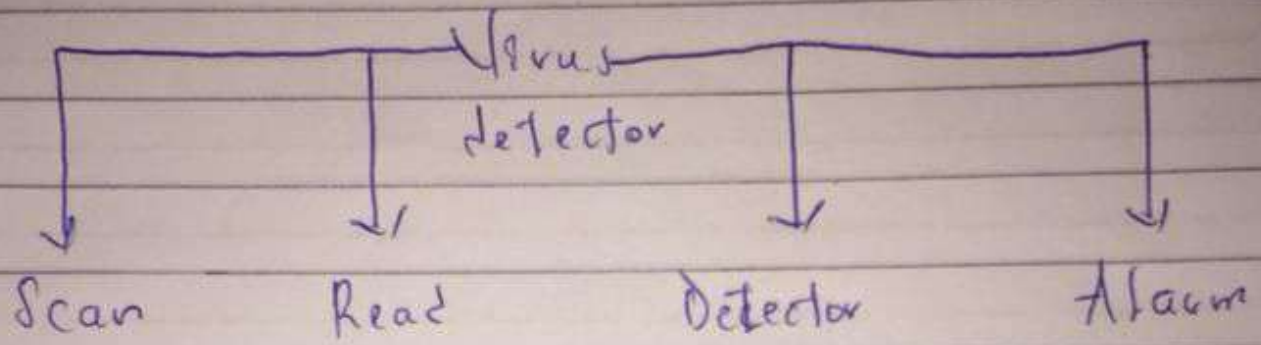 Virus
detector
Scan Read Detector Alarm